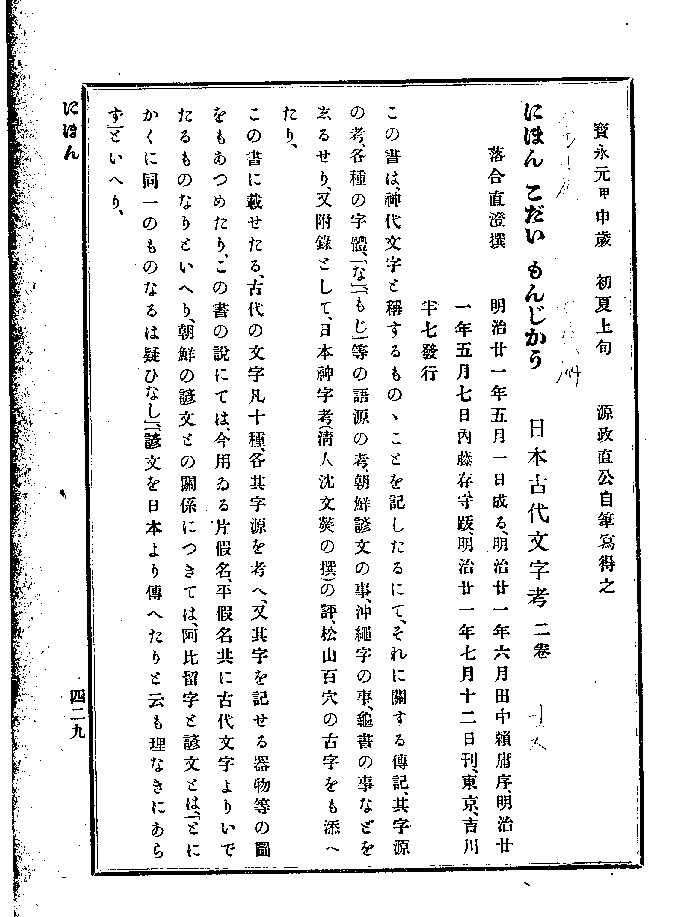 寳永元甲申歳　初夏上旬　源政直公自筆寫得之
にほん こだい もんじかう　日本古代文字考 二卷
落合直澄撰　明治廿一年五月一日成る、明治廿一年六月田中賴庸序、明治廿
一年五月七日內藤存守跋、明治廿一年七月十二日刊、東京、吉川
半七發行
この書は、神代文字と稱するものゝことを記したるにて、それに關する傳記、其字源
の考、各種の字體、「な」「もじ」等の語源の考、朝鮮諺文の事、沖繩字の事、龜書の事などを
ゑるせり、又附錄として、日本神字考(淸人沈文熒の撰)の評、松山百穴の古字をも添へ
たり、
この書に載せたる、古代の文字凡十種、各其字源を考へ、又其字を記せる器物等の圖
をもあつめたり、この書の說にては、今用ゐる片假名、平假名共に古代文字よりいで
たるものなりといへり、朝鮮の諺文との關係につきては、阿比留字と諺文とは、「とに
かくに同一のものなるは疑ひなし」「諺文を日本より傳へたりと云も理なきにあら
ず」といへり、
にほん
四二九